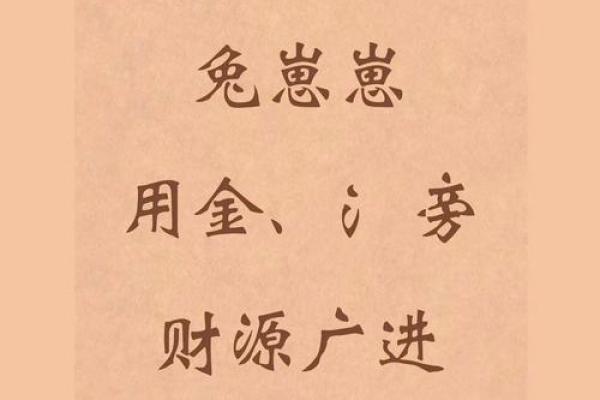 兔崽崽
用金、氵旁
财源广进